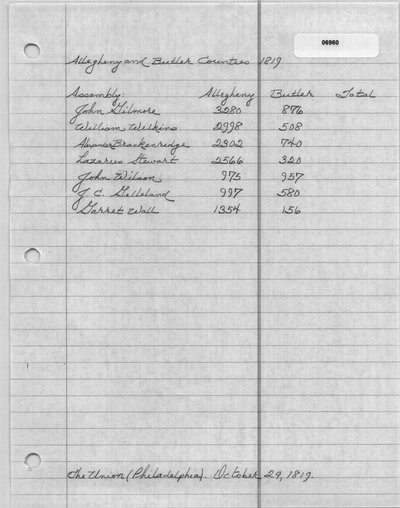 06960
Allegheny and Butler Counties 1819
Assembly: Allegheny Butler Total
John Gilmore 3280 876
William Wilkins 2998 508
Alexander Brackenridge 2302 740
Lazarus Stewart 2566 320
John Wilson 975 957
J. C. Gilleland 997 580
Garret Wall 1354 156
The Union (Philadelphia). October 29, 1819.